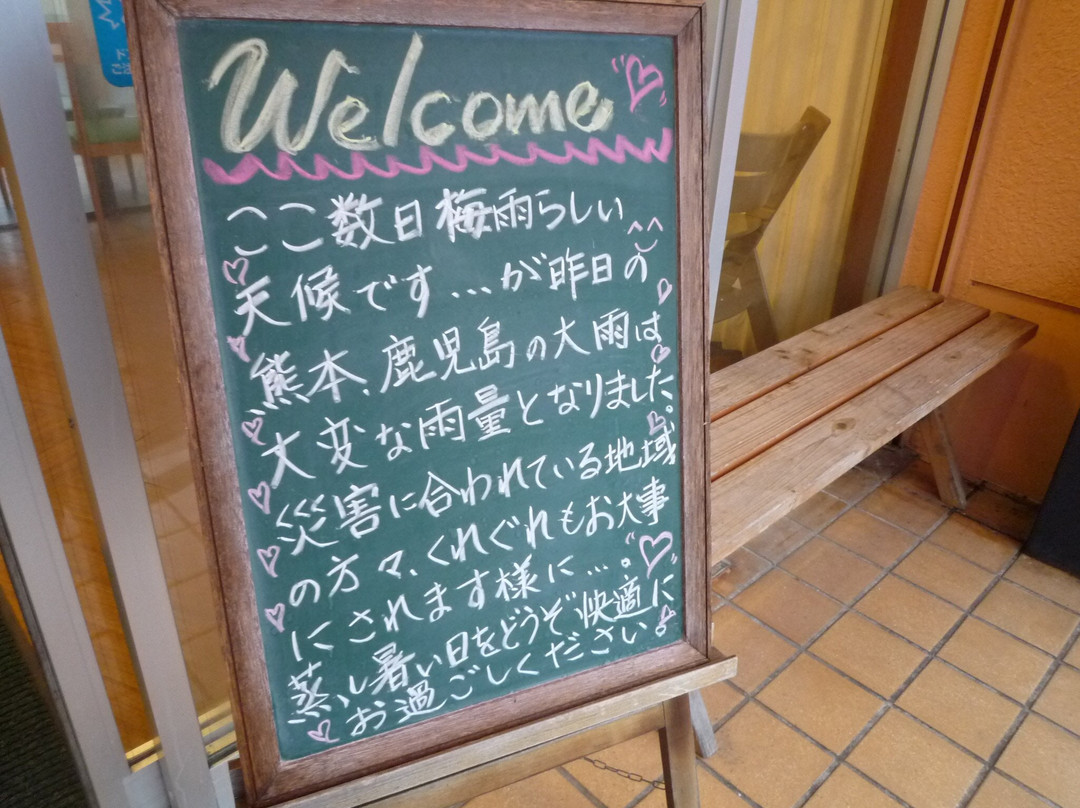 Welcome
ここ数日梅雨らしい
天候です...が昨日の^^
熊本、鹿児島の大雨は
大変な雨量となりました。
災害に合われている地域
の方々、くれぐれもお大事
にされます様に...。
蒸し暑い日をどうぞ快適に
お過ごしください。